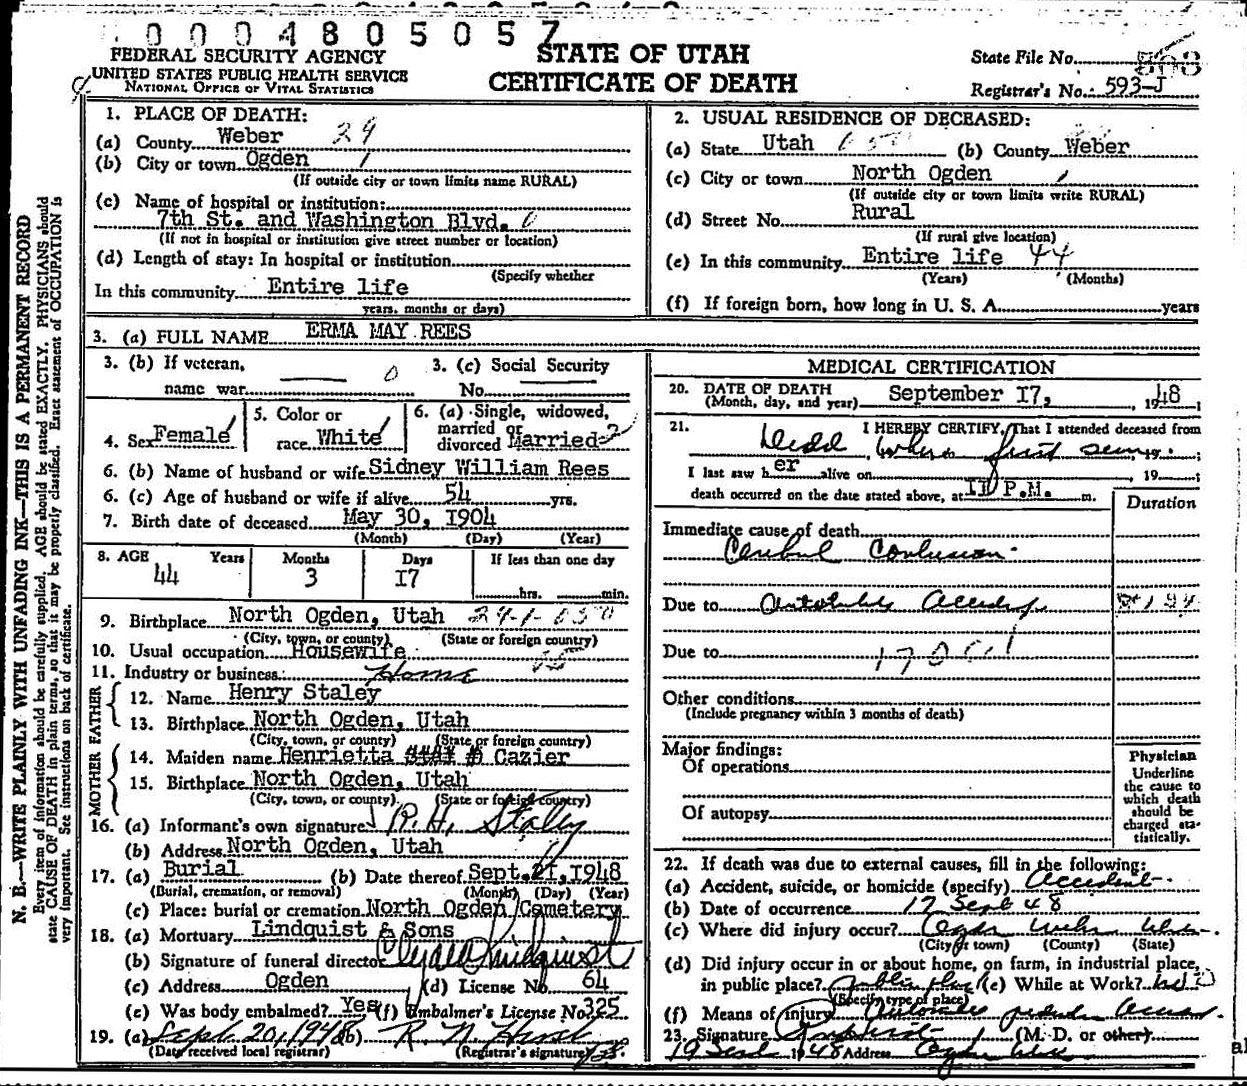 0004805057
FEDERAL SECURITY AGENCY
UNITED STATES PUBLIC HEALTH SERVICE
NATIONAL OFFICE OF VITAL STATISTICS
STATE OF UTAH
CERTIFICATE OF DEATH
State File No.
Registrar's No. 593-J
N. B.—WRITE PLAINLY WITH UNFADING INK—THIS IS A PERMANENT RECORD
Every item of information should be carefully supplied. AGE should be stated EXACTLY. PHYSICIANS should
state CAUSE OF DEATH in plain terms, so that it may be properly classified. Exact statement of OCCUPATION is
very important. See instructions on back of certificate.
1. PLACE OF DEATH:
(a) County Weber 29
(b) City or town Ogden
(If outside city or town limits name RURAL)
(c) Name of hospital or institution:
7th St. and Washington Blvd.
(If not in hospital or institution give street number or location)
(d) Length of stay: In hospital or institution
(Specify whether
In this community Entire life
years, months or days)
2. USUAL RESIDENCE OF DECEASED:
(a) State Utah (b) County Weber
(c) City or town North Ogden
(If outside city or town limits write RURAL)
(d) Street No. Rural
(If rural give location)
(e) In this community Entire life 44
(Years) (Months)
(f) If foreign born, how long in U. S. A. years
3. (a) FULL NAME ERMA MAY REES
3. (b) If veteran, 3. (c) Social Security
name war No.
4. Sex Female 5. Color or race White 6. (a) Single, widowed, married or divorced Married
6. (b) Name of husband or wife Sidney William Rees
6. (c) Age of husband or wife if alive 54 yrs.
7. Birth date of deceased May 30, 1904
(Month) (Day) (Year)
8. AGE Years Months Days If less than one day
44 3 17 hrs. min.
9. Birthplace North Ogden, Utah
(City, town, or county) (State or foreign country)
10. Usual occupation Housewife
11. Industry or business: Home
FATHER
12. Name Henry Staley
13. Birthplace North Ogden, Utah
(City, town, or county) (State or foreign country)
MOTHER
14. Maiden name Henrietta Cazier
15. Birthplace North Ogden, Utah
(City, town, or county) (State or foreign country)
16. (a) Informant's own signature R. H. Staley
(b) Address North Ogden, Utah
17. (a) Burial (b) Date thereof Sept. 21, 1948
(Burial, cremation, or removal) (Month) (Day) (Year)
(c) Place: burial or cremation North Ogden Cemetery
18. (a) Mortuary Lindquist & Sons
(b) Signature of funeral director Lindquist
(c) Address Ogden (d) License No. 64
(e) Was body embalmed? Yes (f) Embalmer's License No. 325
19. (a) Sept. 20, 1948 (b) R. N. Hirst
(Date received local registrar) (Registrar's signature)
MEDICAL CERTIFICATION
20. DATE OF DEATH
(Month, day, and year) September 17, 1948;
21. I HEREBY CERTIFY, That I attended deceased from
Dead when first seen, 19 ;
I last saw her alive on , 19 ;
death occurred on the date stated above, at 11 P.M. m.
Duration
Immediate cause of death
Cerebral Contusion
Due to Automobile Accident
Due to
Other conditions
(Include pregnancy within 3 months of death)
Major findings:
Of operations
Of autopsy
Physician
Underline
the cause to
which death
should be
charged sta-
tistically.
22. If death was due to external causes, fill in the following:
(a) Accident, suicide, or homicide (specify) Accident
(b) Date of occurrence 17 Sept 48
(c) Where did injury occur? Ogden Weber Utah
(City or town) (County) (State)
(d) Did injury occur in or about home, on farm, in industrial place,
in public place? Public place (e) While at Work?
(Specify type of place)
(f) Means of injury Automobile
23. Signature (M. D. or other)
19 Sept 1948 Address Ogden Utah